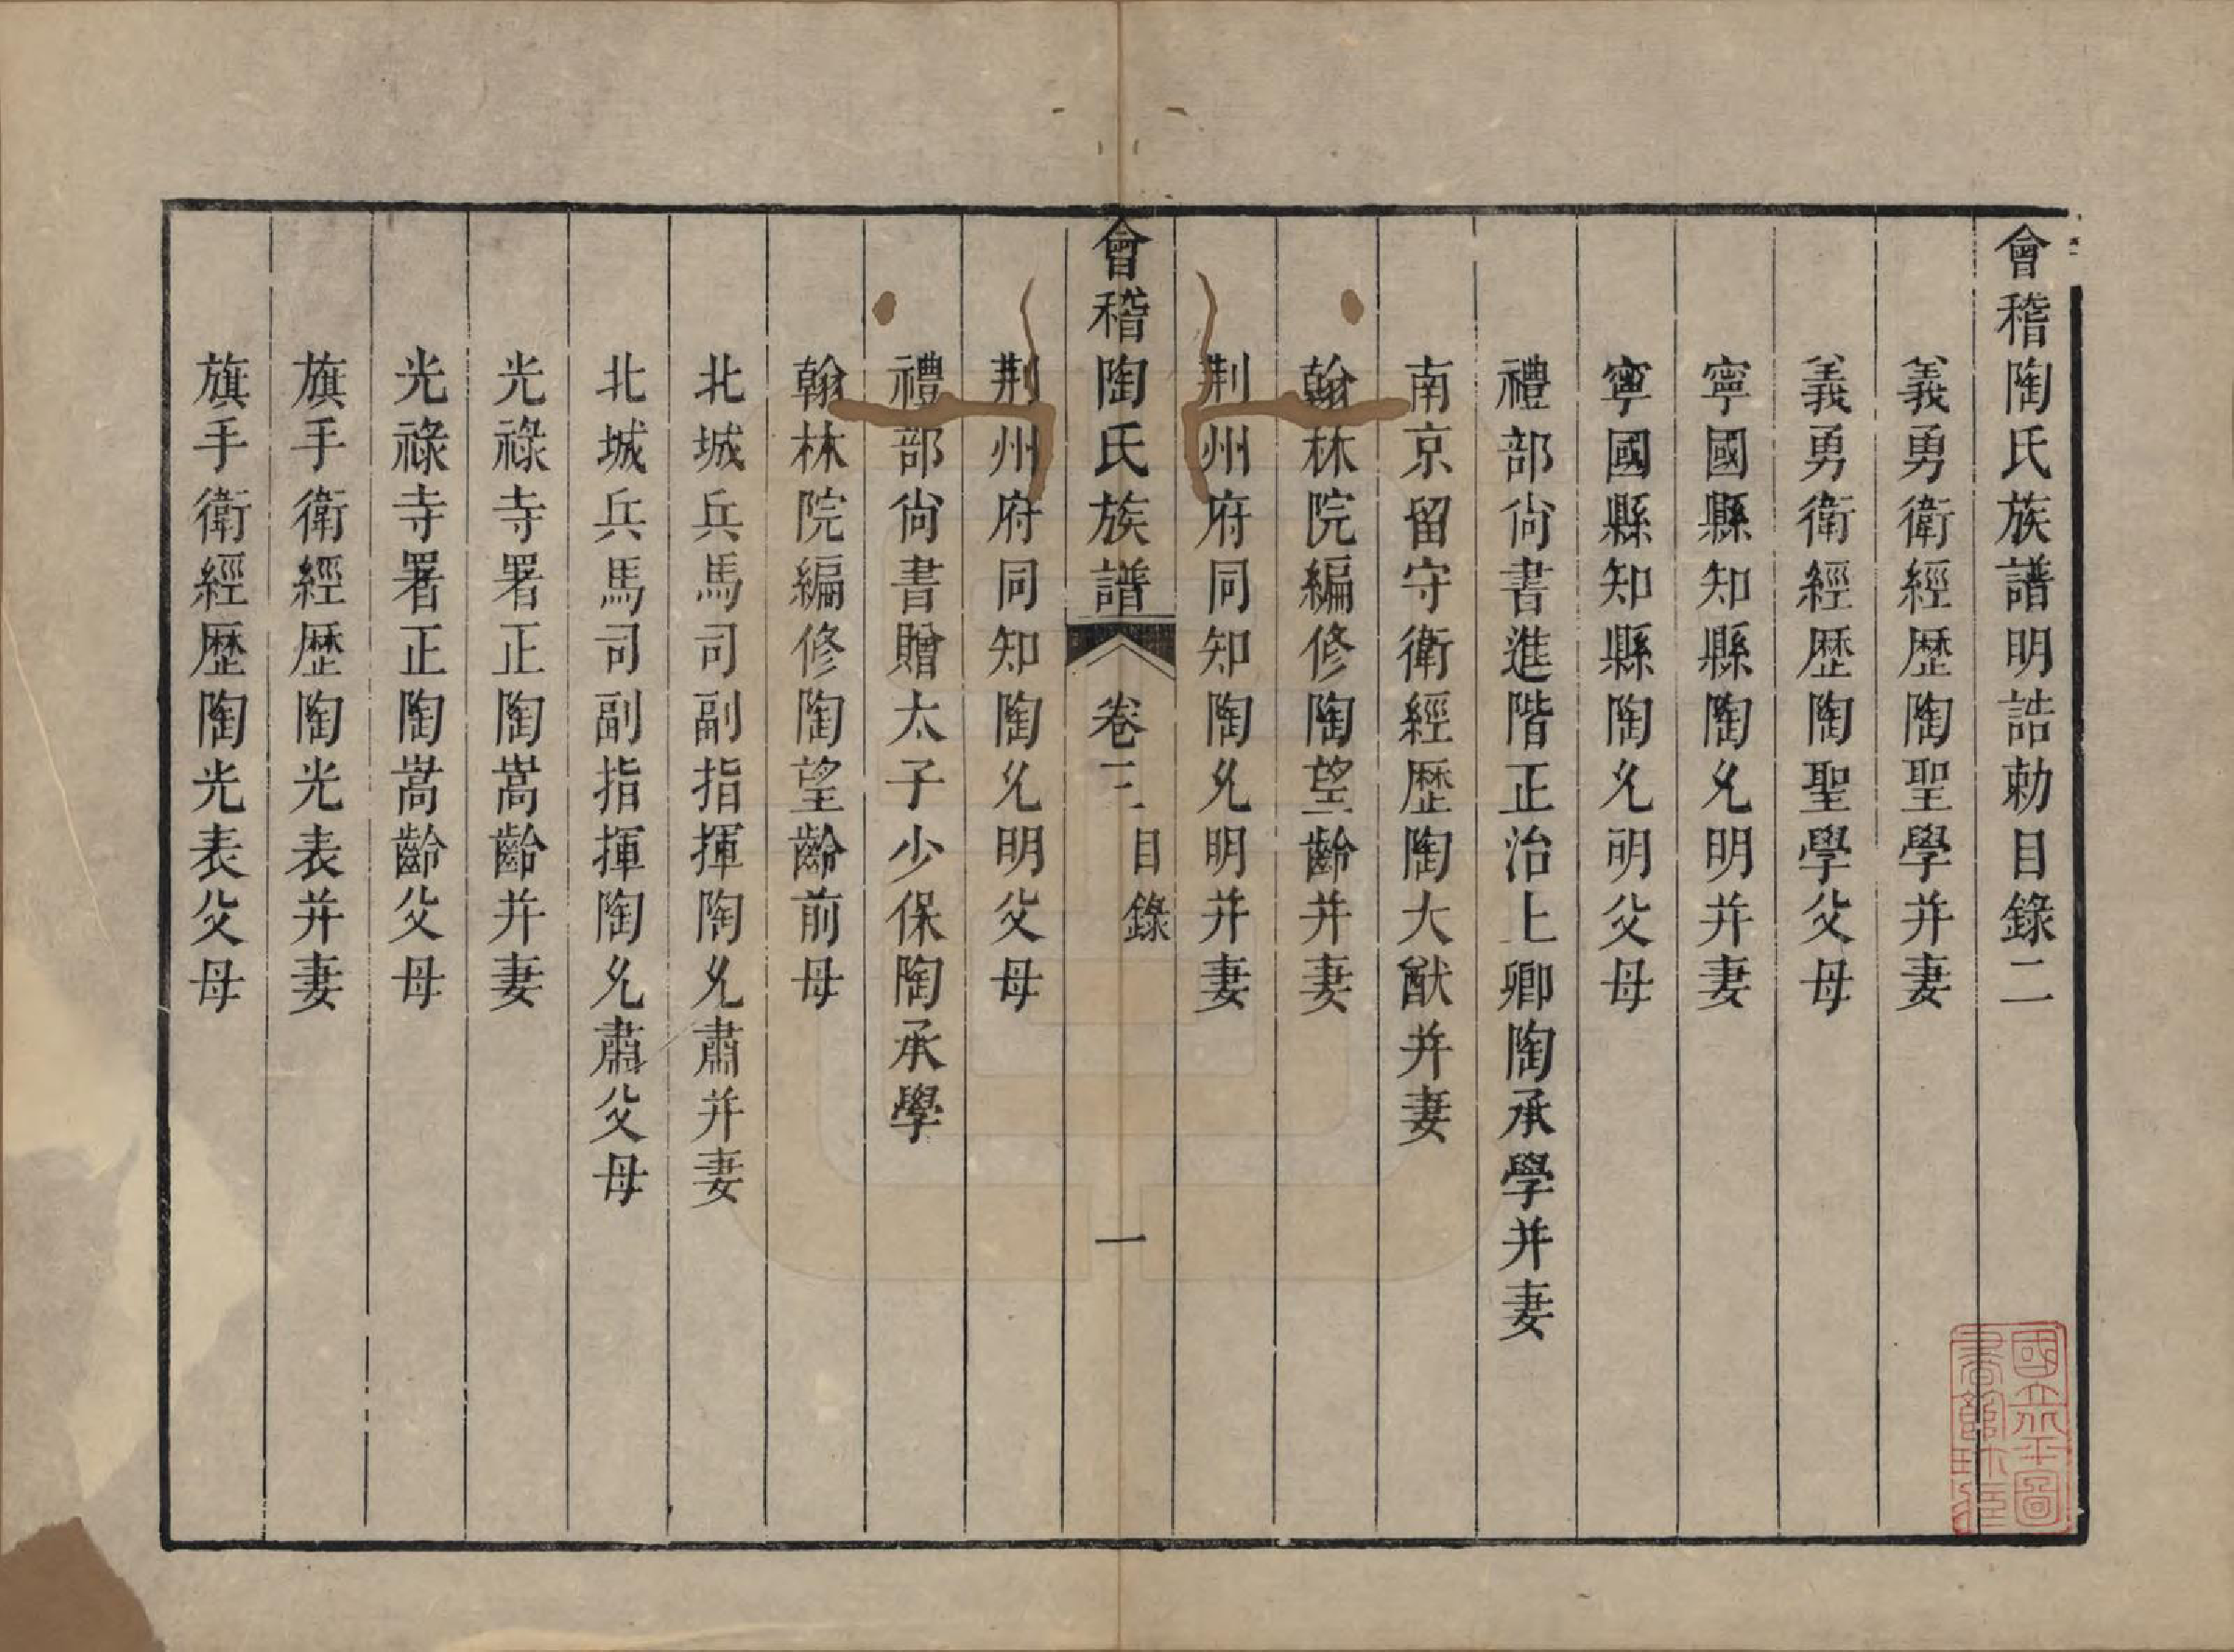 會稽陶氏族譜明誥勅目錄二
義勇衛經歷陶聖學并妻
義勇衛經歷陶聖學父母
寧國縣知縣陶允明并妻
寧國縣知縣陶允明父母
禮部尙書進階正治上卿陶承學并妻
南京留守衛經歷陶大猷并妻
翰林院編修陶望齡并妻
荆州府同知陶允明并妻
會稽陶氏族譜 卷三 目錄 一
荆州府同知陶允明父母
禮部尙書贈太子少保陶承學
翰林院編修陶望齡前母
北城兵馬司副指揮陶允肅并妻
北城兵馬司副指揮陶允肅父母
光祿寺署正陶嵩齡并妻
光祿寺署正陶嵩齡父母
旗手衛經歷陶光表并妻
旗手衛經歷陶光表父母
國立北平圖
書館珍藏